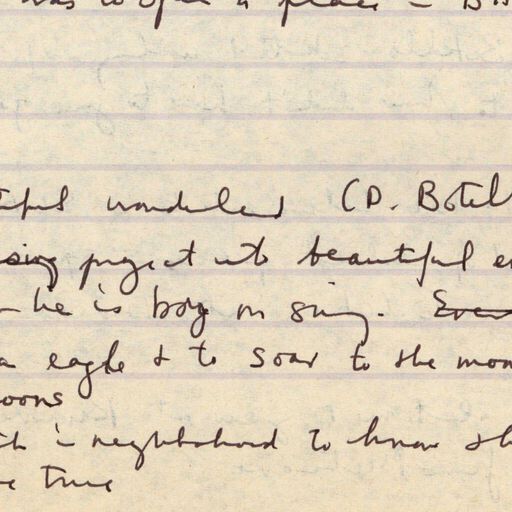 was to open a place -
tiful wonderland (D. Botel
project into beautiful
he is boy on swing.
a eagle & to soar to the moon
oons
in neighborhood to know
true